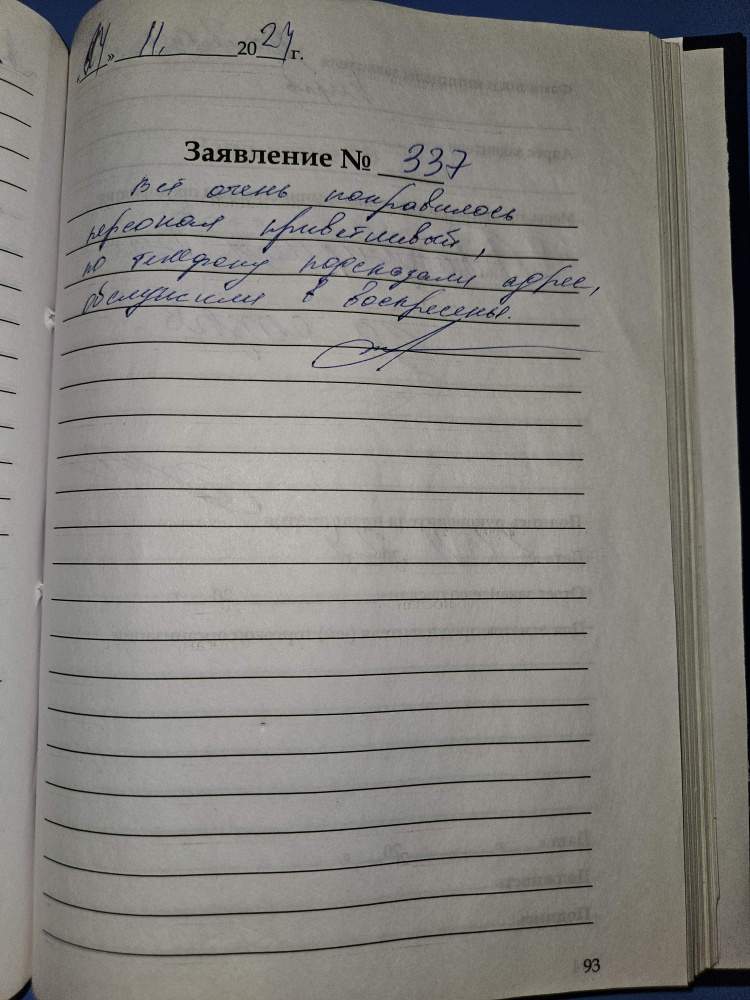 «24» 11. 2024 г.
Заявление № 337
Всё очень понравилось
персонал приветливый,
по телефону подсказали адрес,
обслужили в воскресенье.
93